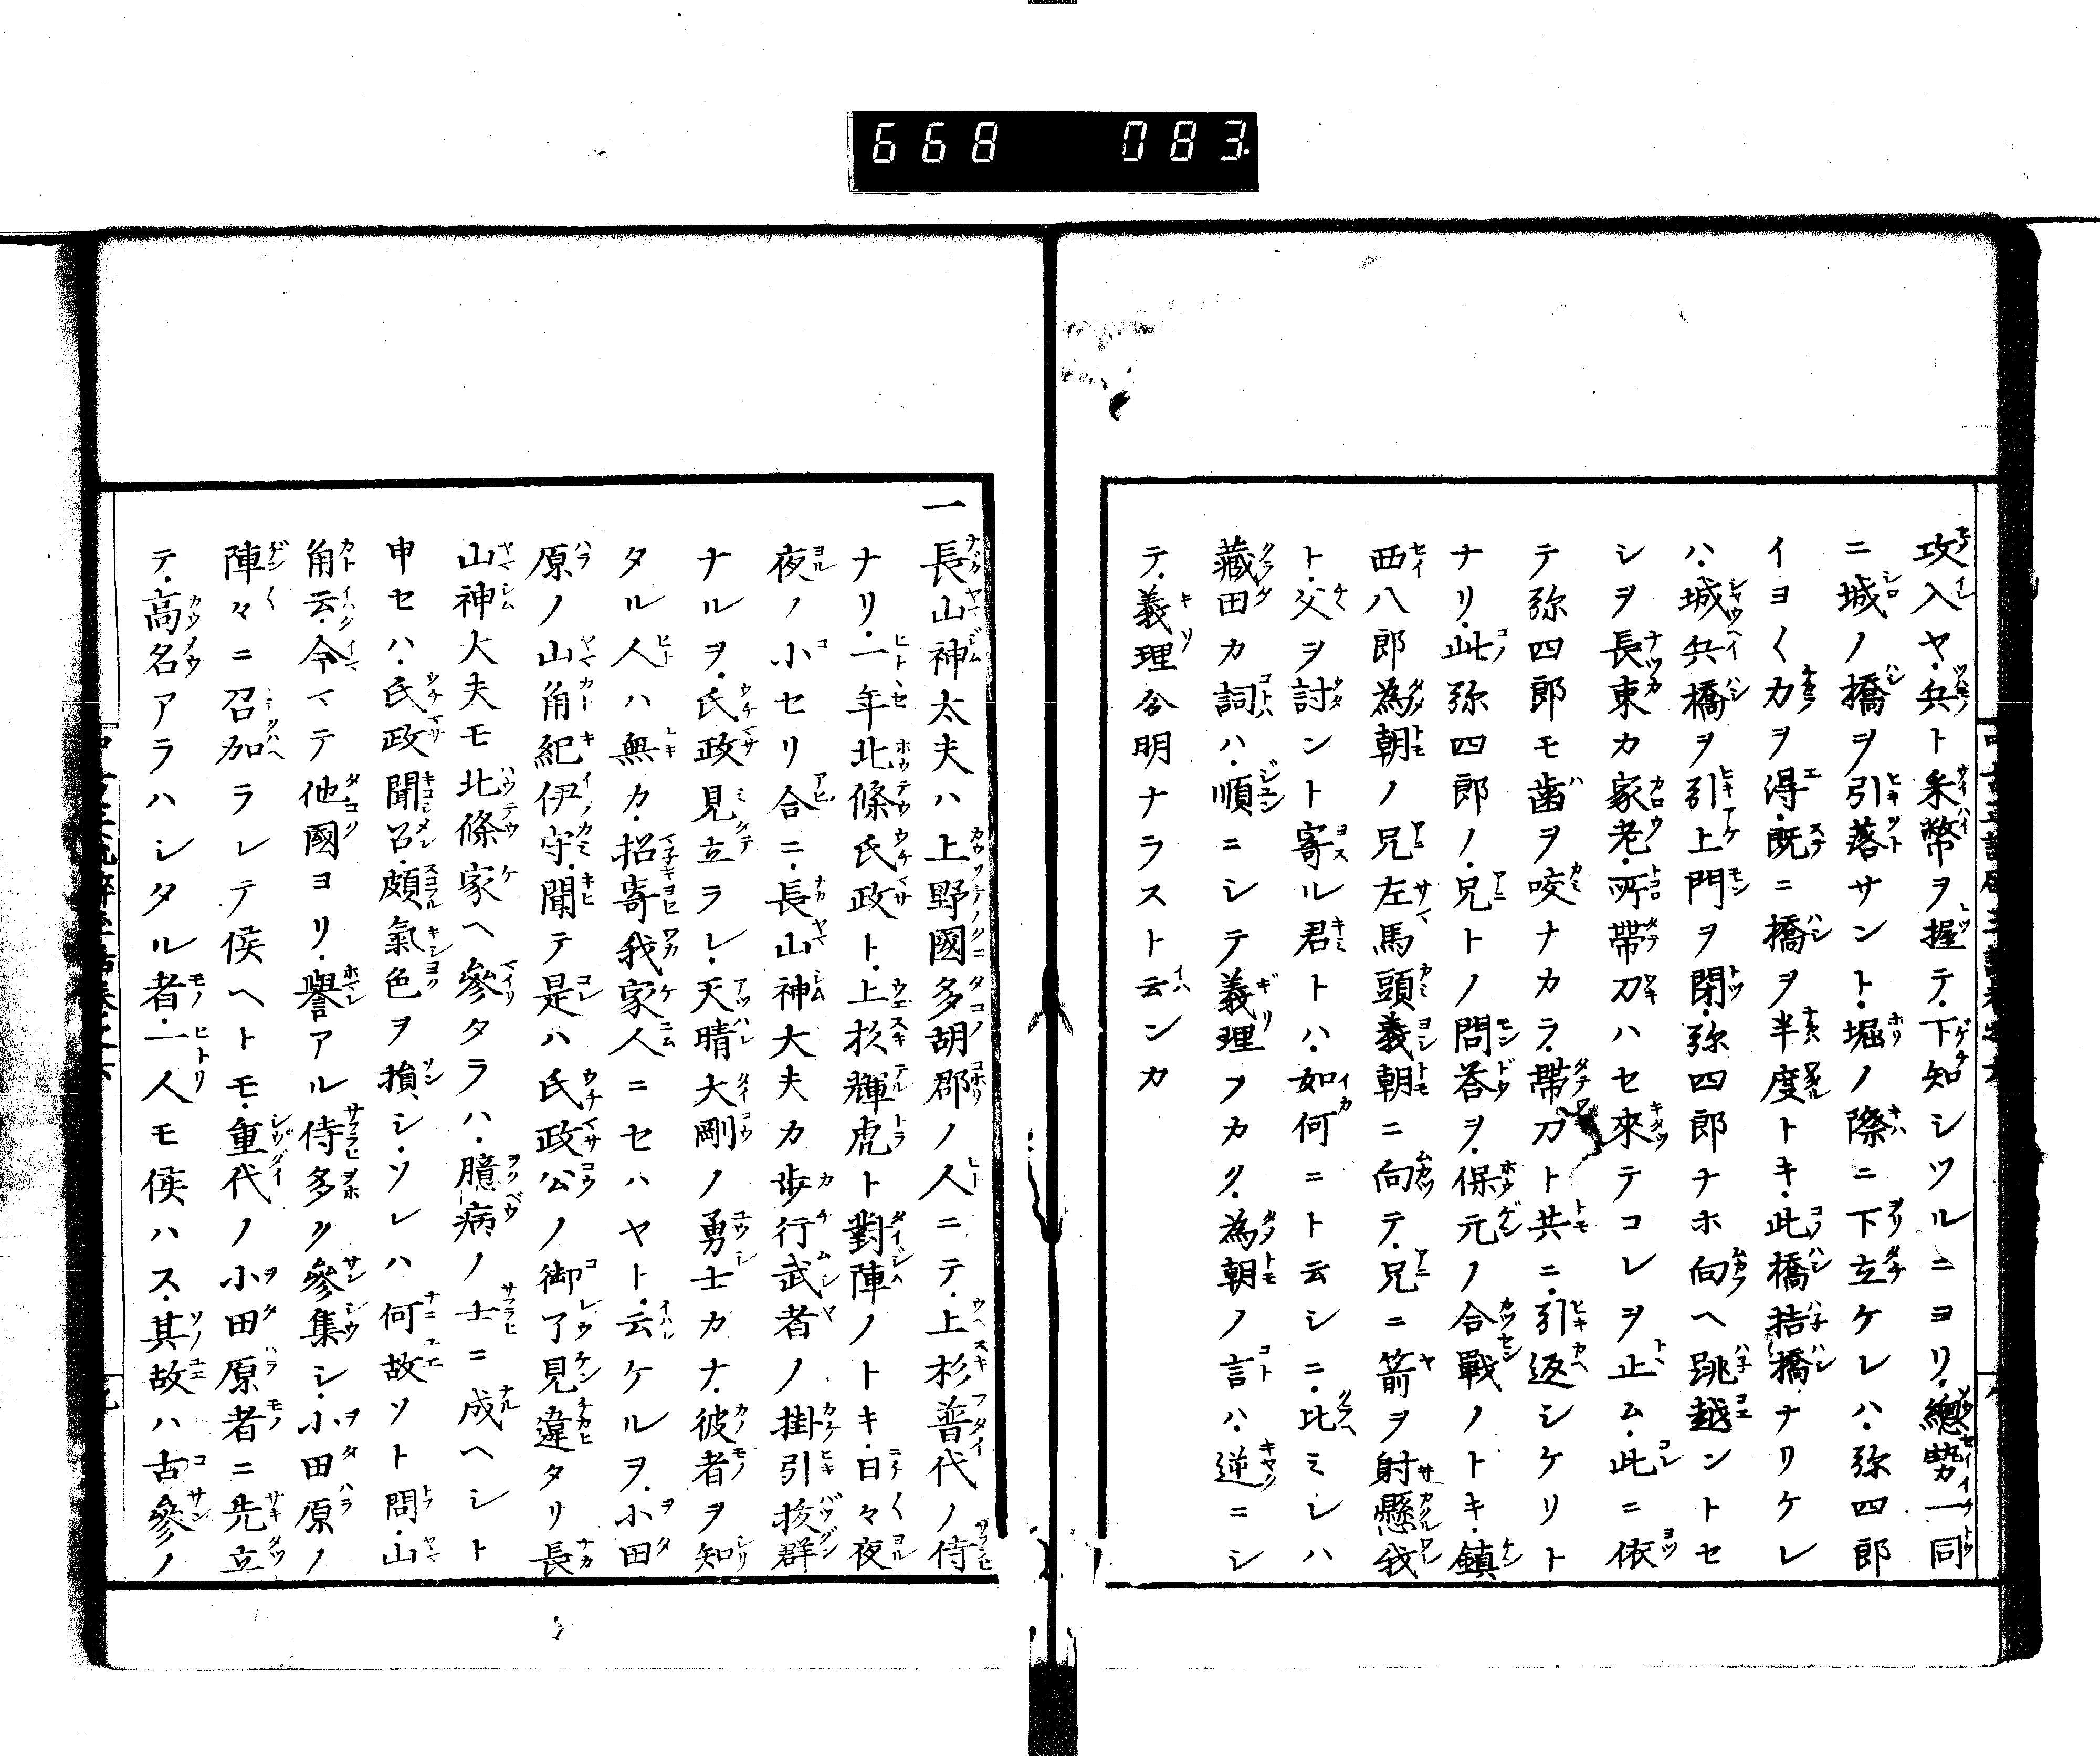 668 083.
攻入ヤ、兵ト釆幣ヲ握テ、下知シツルニヨリ、總勢一同
ニ城ノ橋ヲ引落サント、堀ノ際ニ下立ケレハ、弥四郎
イヨ〱カヲ得、既ニ橋ヲ半度トキ、此橋桔橋ナリケレ
ハ、城兵橋ヲ引上門ヲ閉、弥四郎ナホ向ヘ跳越ントセ
シヲ長束カ家老、所帶刀ハセ來テコレヲ止ム、此ニ依
テ弥四郎モ歯ヲ咬ナカラ、帶刀ト共ニ、引返シケリト
ナリ、此弥四郎ノ、兄トノ問答ヲ、保元ノ合戰ノトキ、鎮
西八郎為朝ノ兄左馬頭義朝ニ向テ、兄ニ箭ヲ射懸我
ト、父ヲ討ント寄ル君トハ、如何ニト云シニ、此ミシハ
藏田カ詞ハ、順ニシテ義理フカク、為朝ノ言ハ、逆ニシ
テ、義理分明ナラスト云ンカ
一長山神太夫ハ上野國多胡郡ノ人ニテ、上杉普代ノ侍
ナリ、一年北條氏政ト、上杦輝虎ト對陣ノトキ、日々夜
夜ノ小セリ合ニ、長山神大夫カ歩行武者ノ掛引拔群
ナルヲ、氏政見立ラレ、天晴大剛ノ勇士カナ、彼者ヲ知
タル人ハ無カ、招寄我家人ニセハヤト、云ケルヲ、小田
原ノ山角紀伊守、聞テ是ハ氏政公ノ御了見違タリ長
山神大夫モ北條家ヘ參タラハ、臆病ノ士ニ成ヘシト
申セハ、氏政聞召、頗氣色ヲ損シ、ソレハ何故ソト問、山
角云、今マテ他國ヨリ、譽アル侍多ク參集シ、小田原ノ
陣々ニ召加ラレテ侯ヘトモ、重代ノ小田原者ニ先立
テ、高名アラハシタル者、一人モ侯ハス、其故ハ古參ノ